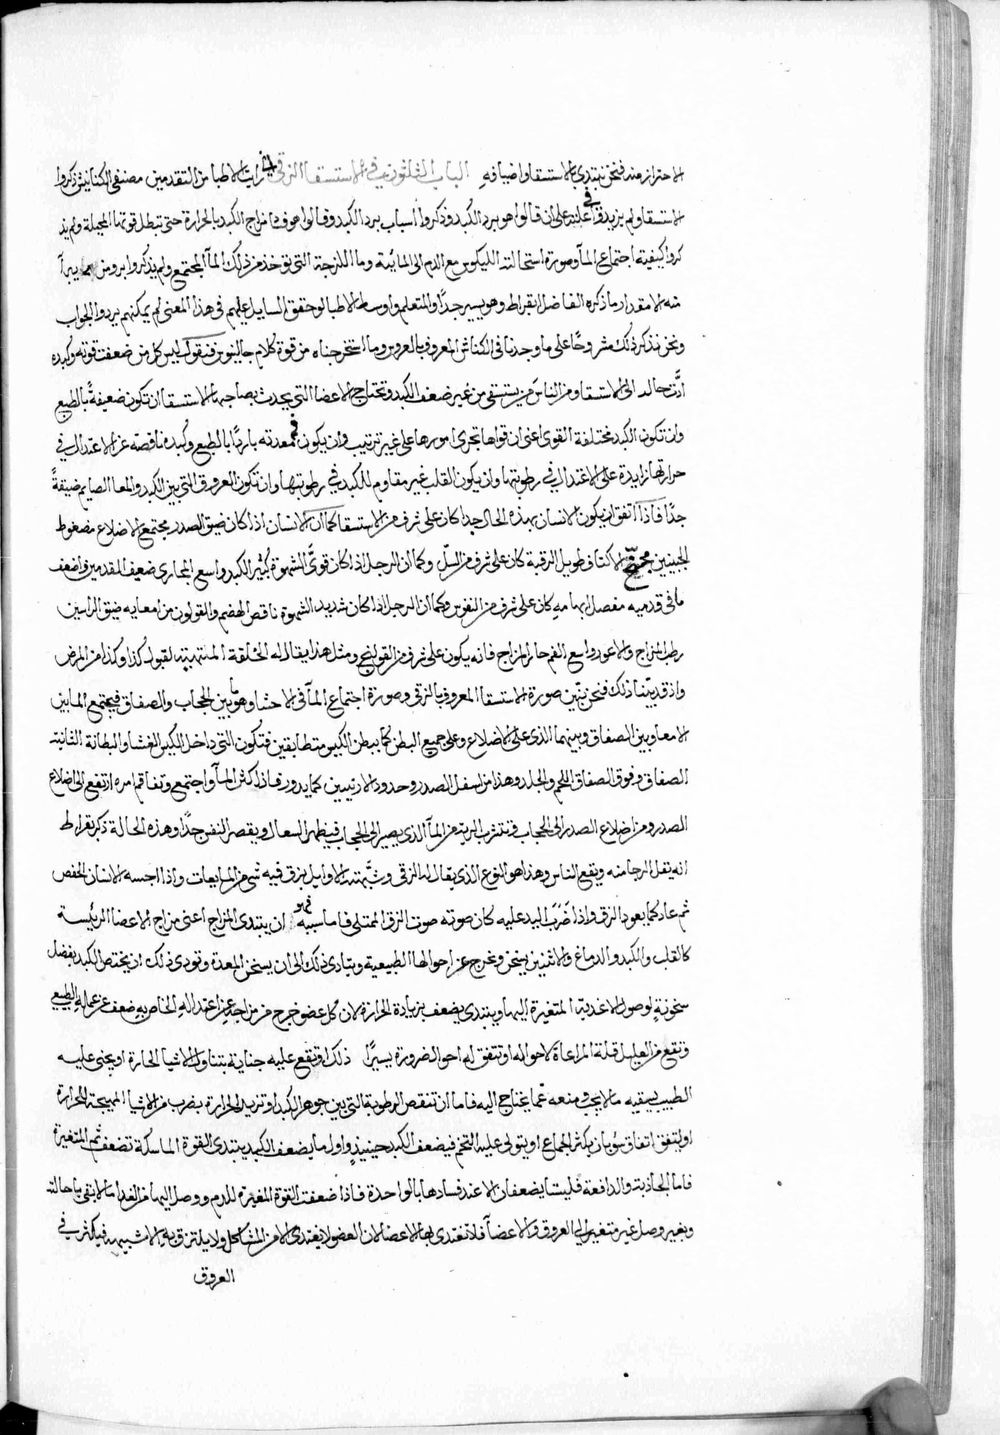 الاحتراز منه فنحن نبتدي بالاستسقا واضيافه الباب الثلثون في الاستسقا الزقي رايت الاطبا من المتقدمين مصنفى الكنانيش ذكروا
الاستسقا ولم يزيدوا في علته على ان قالوا هو برد الكبد وذكروا اسباب برد الكبد وقالوا هو فساد مزاج الكبد بالحرارة حتى تبطل قوتها المحيلة ولم يذ
كروا كيفية اجتماع المآ وصورة استحالة الكيلوس مع الدم الى المائية وما اللازجة التي توخذ من ذلك المآ المجتمع ولم يذكروا برو من يبرأ
منه الا مقدار ما ذكره الفاضل ابقراط وهو يسير جدًا والمتعلم واوسط الاطبا لو حقق السايل عليهم في هذا المعنى لم يمكنهم يردوا الجواب
ونحن نذكر ذلك مشروحًا على ما وجدنا في الكناش المعروف بالعروس وما استخرجناه من قوة كلام جالينوس فنقول ليس كل من ضعفت قوته وكبده
ادّت حاله الى الاستسقا ومن الناس من يستسقي من غير ضعف الكبد وتحتاج الاعضا التي يحدث بصاحبها الاستسقا ان تكون ضعيفةً بالطبع
وان تكون الكبد مختلفة القوى اعني ان قواها تجرى امورها على غير ترتيب وان يكون فم معدته باردًا بالطبع وكبده ناقصة عن الاعتدال في
حرارتها زايدة على الاعتدال في رطوبتها وان يكون القلب غير مقاوم للكبد في رطوبتها وان تكون العروق التي بين الكبد والمعا الصايم ضيقةً
جدًا فاذا اتفق ان يكون الانسان بهذه الحال جدا كان على شرف من الاستسقا كما ان الانسان اذا كان ضيق الصدر مجتمع الاضلاع مضغوط
الجبينين مجنح الاكتاف طويل الرقبة كان على شرف من السلّ وكما ان الرجل اذا كان قوىّ الشهوة كبير الكبد واسع المجارى ضعيف القدمين واضعف
ما في قدميه مفصل ابهامه كان على شرف من النقرس وكما ان الرجل اذا كان شديد الشهوة ناقص الهضم والقولون من امعايه ضيق الراسين
رطب المزاج والاعور واسع الفم حار المزاج فانه يكون على شرف من القولنج ومثل هذا يقال له الخلقة المتهيية لقبول كذا وكذا من المرض
واذ قد بيّنا ذلك فنحن نبيّن صورة الاستسقا المعروف بالزقي وصورة اجتماع المآ في الاحشا وهو بين الحجاب والصفاق فيجتمع الما بين
الامعا وبين الصفاق وبينهما الذى على الاضلاع وعلى جميع البطن كما يبطن الكيس متطابقين فتكون التي داخل الكيس الغشا والبطانة الثانية
الصفاق وفوق الصفاق اللحم والجلد وهذا من اسفل الصدر وحدود الاربيتين كما يدور فاذا كثر المآ واجتمع وتفاقم امره ارتفع الى اضلاع
الصدر ومن اضلاع الصدر الى الحجاب فتتشرب الرية من المآ الذي يصير الى الحجاب فيظهر السعال ويقصر النفس جدًا وهذه الحالة ذكر بقراط
انه يقل الرجا منه ويقع الياس وهذا هو النوع الذي يقال له الزقي وشبّهته الاوايل بزق فيه شي من المايعات واذا اجسه الانسان انخفص
ثم عاد كما يعود الزق واذا ضرب اليد عليه كان صوته صوت الزق الممتلى فاما سببه فهو ان يبتدى المزاج اعنى مزاج الاعضا الرئيسة
كالقلب والكبد والدماغ والانثيين يسخن وتخرج عن احوالها الطبيعية ويتادى ذلك الى ان يسخن المعدة وتودى ذلك ان يختص الكبد بفضل
سخونة لوصول الاغذية المتغيرة اليها ويبتدى يضعف بزيادة الحرارة لان كل عضو خرج من مزاجه عن اعتداله الخاص به ضعف عن عماله الطبيعي
وتقع من العليل قلة المراعاة لاحواله او تتفق له احوال ضرورة يسيرًا ذلك او تقع عليه جناية بتناول الاشيا الحارة او يجني عليه
الطبيب بسقيه ما لا يجب ومنعه عمّا يحتاج اليه فاما ان تنقص الرطوبة التي بين جوهر الكبد او تزيد الحرارة بضرب من الاشيا المهيجة للحرارة
او يتفق اتفاق سو بان يكثر الجماع او يتوالى عليه التخم فيضعف الكبد حينيذٍ واول ما يضعف الكبد يبتدى القوة الماسكة تضعف ثم المتغيرة
فاما الجاذبة والدافعة فليستا يضعفان الا عند فسادها بالواحدة فاذا ضعفت القوة المغيرة للدم ووصل اليها من الغدا ما لا بقى بحالته
وبغير وصل غير متغير الي العروق والاعضآ فلا تغتذى بها الاعضا لان العضو لا يغتذى الا من المشاكل ولا يلتزق به الا شبيهه فيكثر في
العروق